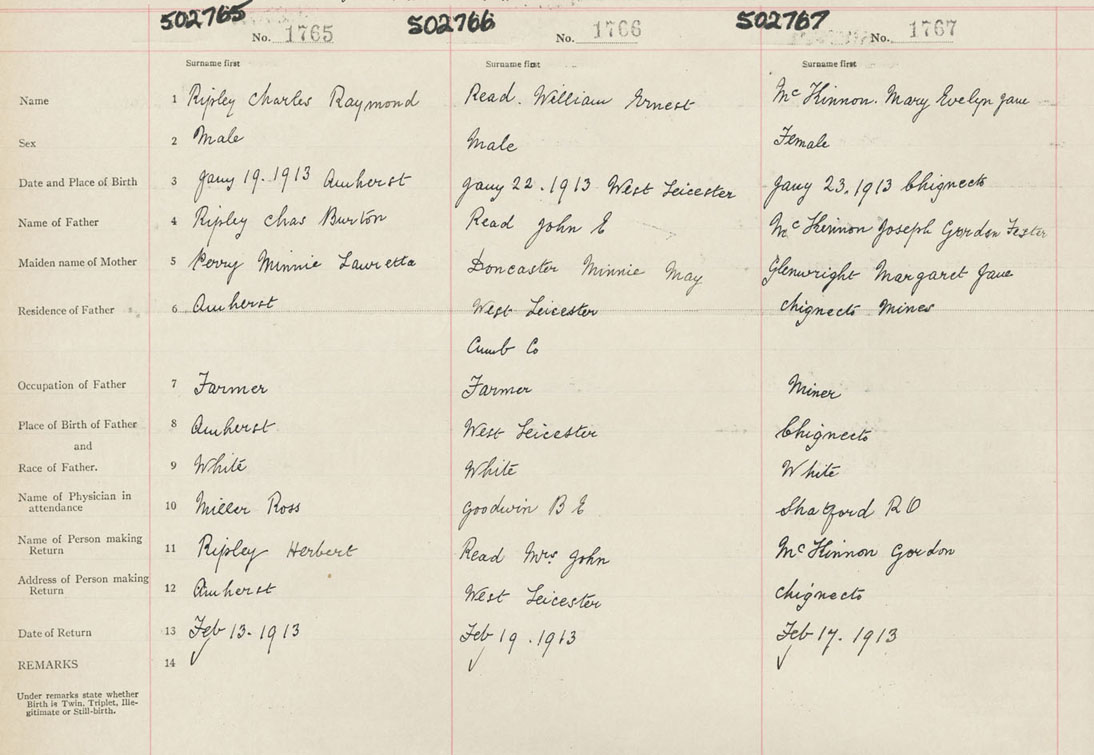 502765 502766 502767
No. 1765 No. 1766 No. 1767
Surname first Surname first Surname first
Name 1 Ripley Charles Raymond Read. William Ernest McKinnon. Mary Evelyn Jane
Sex 2 Male Male Female
Date and Place of Birth 3 Jany 19.1913 Amherst Jany 22.1913 West Leicester Jany 23.1913 Chignecto
Name of Father 4 Ripley Chas Burton Read John E McKinnon Joseph Gordon
Maiden name of Mother 5 Perry Minnie Lauretta Doncaster Minnie May Glenwright Margaret Jane
Residence of Father 6 Amherst West Leicester Chignecto Mines
Cumb Co
Occupation of Father 7 Farmer Farmer Miner
Place of Birth of Father 8 Amherst West Leicester Chignecto
and
Race of Father. 9 White White White
Name of Physician in
attendance 10 Miller Ross Goodwin B E Shatford R O
Name of Person making
Return 11 Ripley Herbert Read Mrs John McKinnon Gordon
Address of Person making
Return 12 Amherst West Leicester Chignecto
Date of Return 13 Feb 13.1913 Feb 19.1913 Feb 17.1913
REMARKS 14
Under remarks state whether
Birth is Twin, Triplet, Ille-
gitimate or Still-birth.